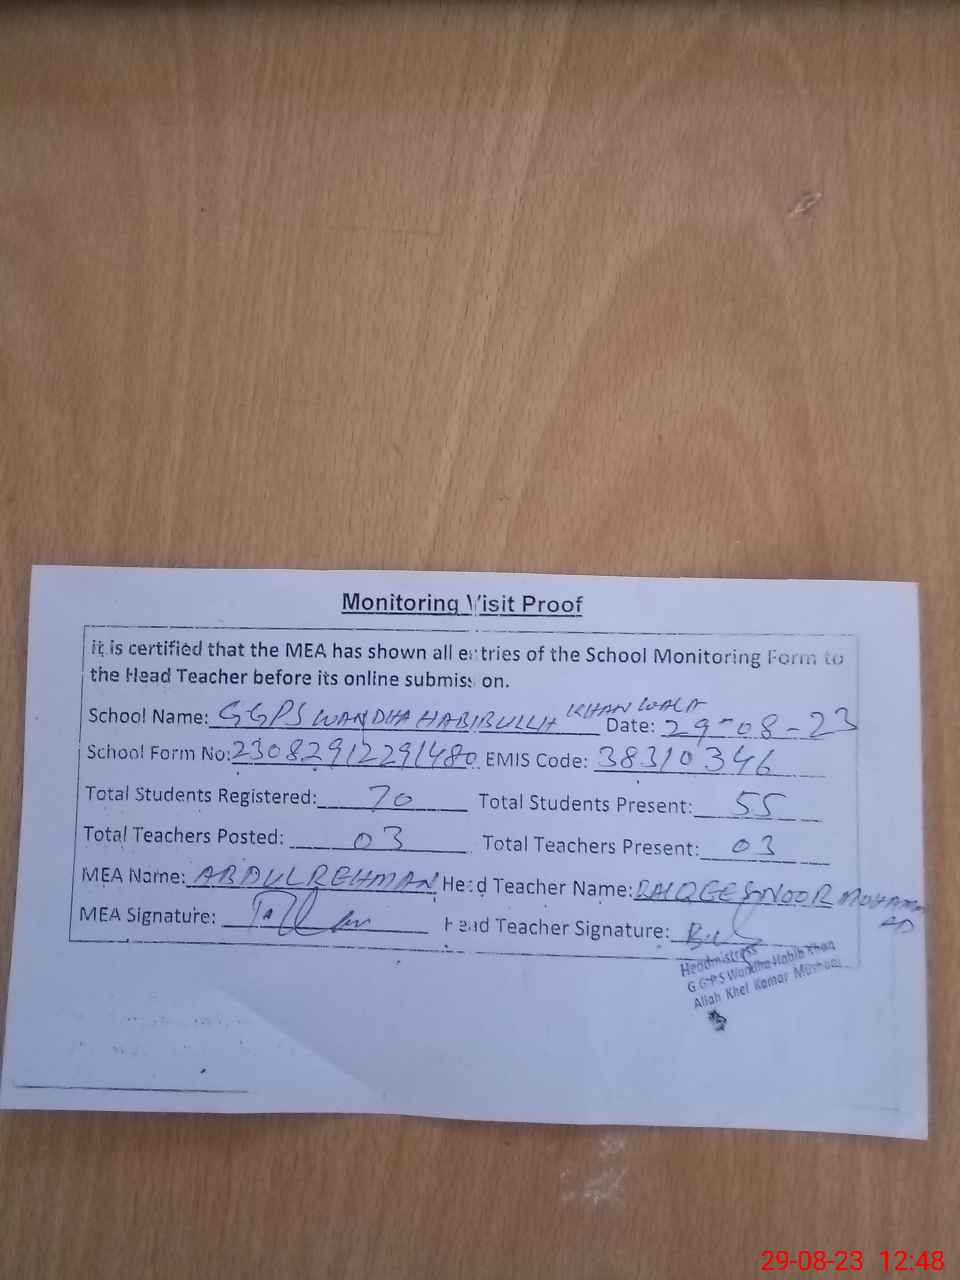 Monitoring Visit Proof
It is certified that the MEA has shown all entries of the School Monitoring Form to
the Head Teacher before its online submission.
School Name: GGPS WANDHA HABIBULLH KHAN WALA Date: 29-08-23
School Form No: 23082912291480 EMIS Code: 38310346
Total Students Registered: 70 Total Students Present: 55
Total Teachers Posted: 03 Total Teachers Present: 03
MEA Name: ABDULREHMAN Head Teacher Name: BALQEES NOOR MUHAMMAD
MEA Signature: Head Teacher Signature:
Headmistress
G.G.P.S Wandha Habib Khan
Allah Khel Kamar Mushani
29-08-23 12:48